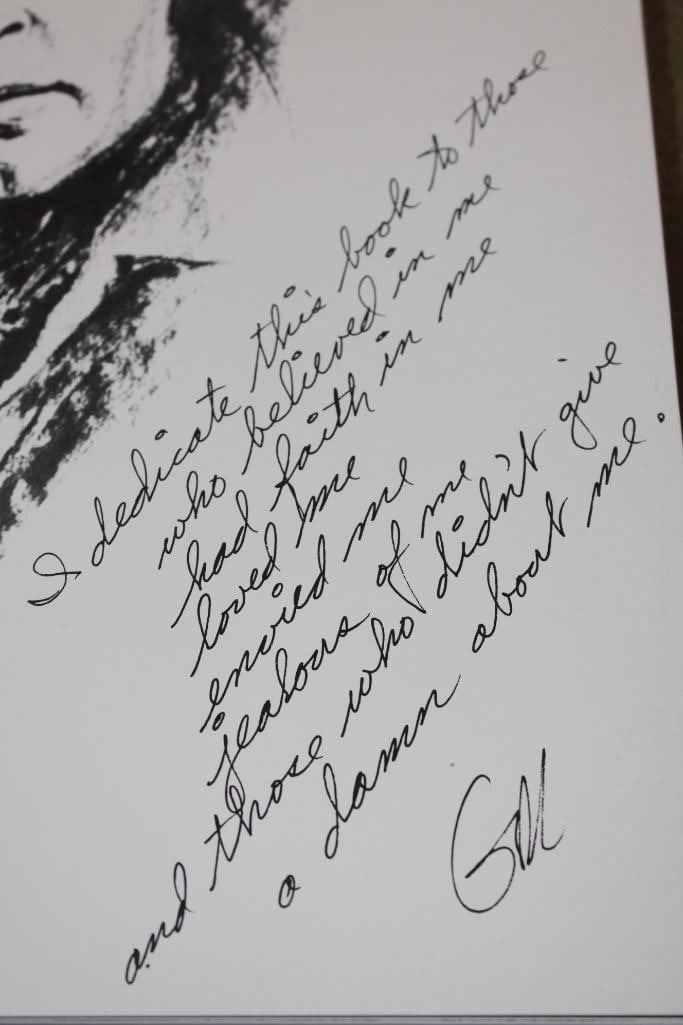 I dedicate this book to those
who believed in me
had faith in me
loved me
envied me
jealous of me
and those who didn't give
a damn about me.
GM